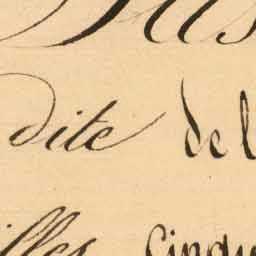 dite del
illes cinqu